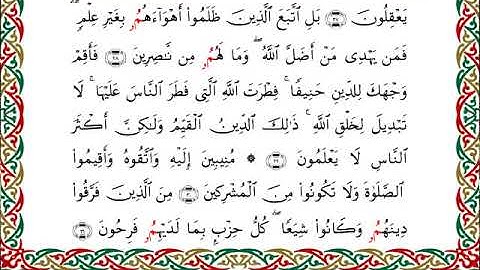 يَعْقِلُونَ ۝٢٧ بَلِ ٱتَّبَعَ ٱلَّذِينَ ظَلَمُوٓا۟ أَهْوَآءَهُمُۥ بِغَيْرِ عِلْمٍۢ ۖ
فَمَن يَهْدِى مَنْ أَضَلَّ ٱللَّهُ ۖ وَمَا لَهُمُۥ مِن نَّـٰصِرِينَ ۝٢٨ فَأَقِمْ
وَجْهَكَ لِلدِّينِ حَنِيفًا ۚ فِطْرَتَ ٱللَّهِ ٱلَّتِى فَطَرَ ٱلنَّاسَ عَلَيْهَا ۚ لَا
تَبْدِيلَ لِخَلْقِ ٱللَّهِ ۚ ذَٰلِكَ ٱلدِّينُ ٱلْقَيِّمُ وَلَـٰكِنَّ أَكْثَرَ
ٱلنَّاسِ لَا يَعْلَمُونَ ۝٢٩ ۞ مُنِيبِينَ إِلَيْهِ وَٱتَّقُوهُ وَأَقِيمُوا۟
ٱلصَّلَوٰةَ وَلَا تَكُونُوا۟ مِنَ ٱلْمُشْرِكِينَ ۝٣٠ مِنَ ٱلَّذِينَ فَرَّقُوا۟
دِينَهُمُۥ وَكَانُوا۟ شِيَعًا ۖ كُلُّ حِزْبٍۭ بِمَا لَدَيْهِمُۥ فَرِحُونَ ۝٣١